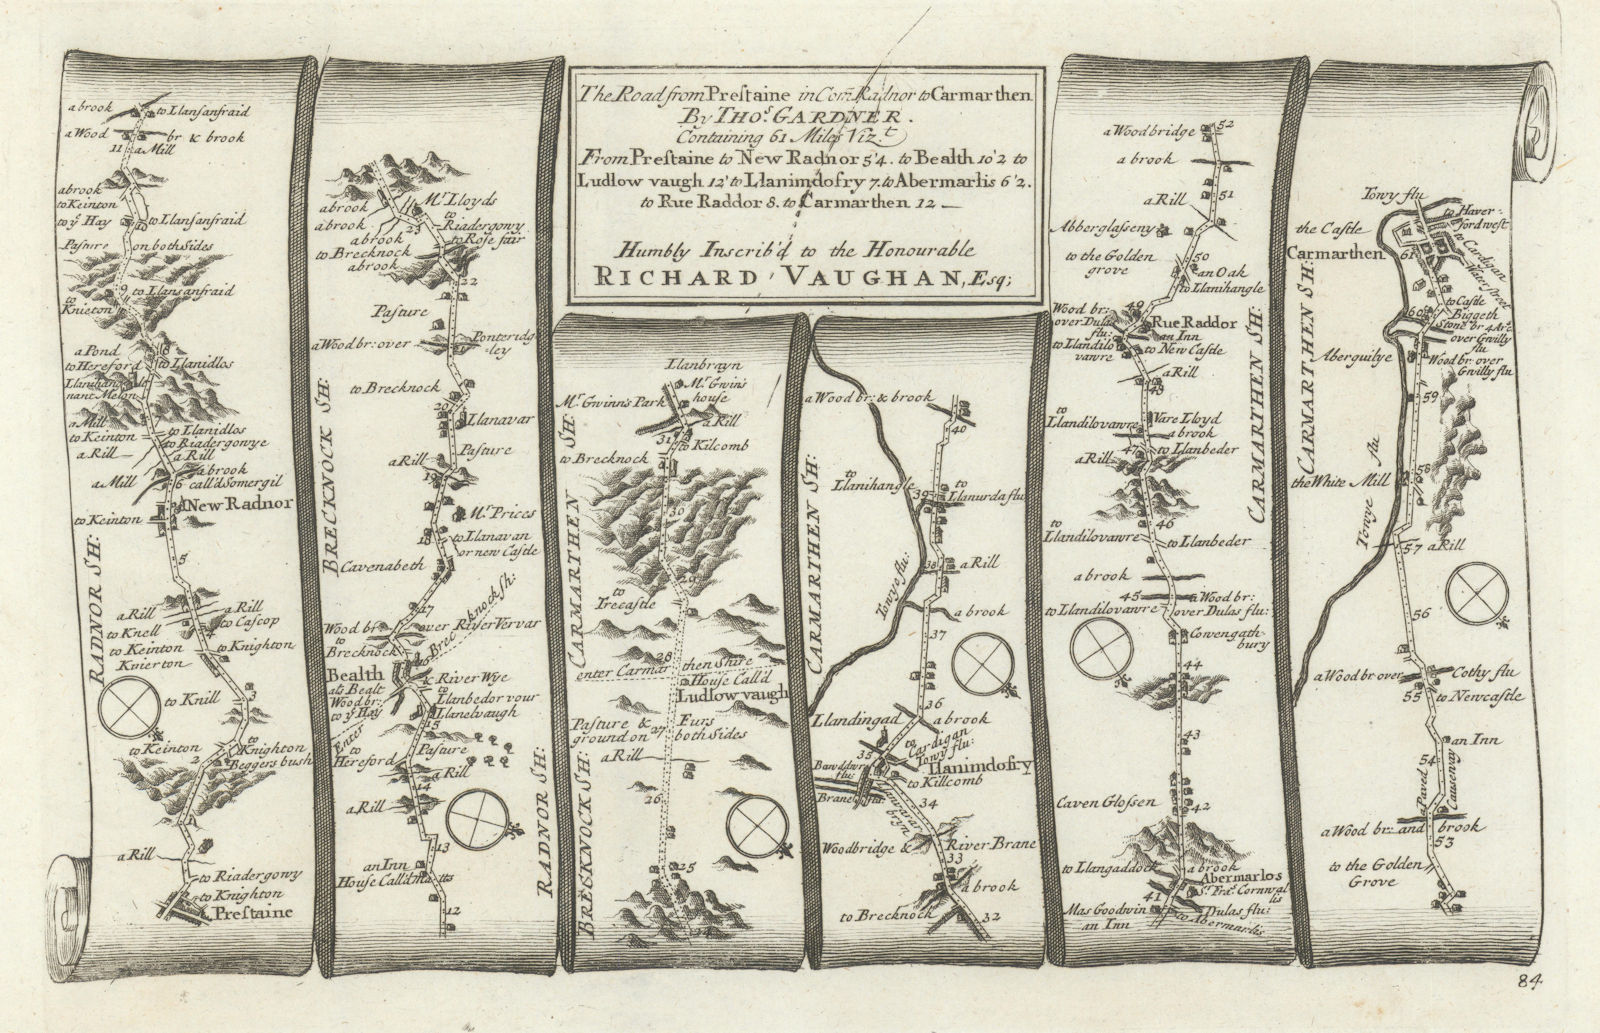 The Road from Prestaine in Com. Radnor to Carmarthen
By THOs. GARDNER.
Containing 61 Miles Vizt.
From Prestaine to New Radnor 5'4. to Bealth 10'2 to
Ludlow vaugh 12' to Llanimdofry 7. to Abermarlis 6'2.
to Rue Raddor 8. to Carmarthen 12
Humbly Inscrib'd to the Honourable
RICHARD VAUGHAN, Esq;
a brook
to Llansanfraid
a Wood
br & brook
11
a Mill
abrook
to Keinton
to ye Hay
10
to Llansanfraid
Pasture on both Sides
9
to Llansanfraid
to
Knieton
a Pond
8
to Hereford
to Llanidlos
Llanihang
nant Melon
a Mill
to Llanidlos
to Keinton
to Riadergowye
a Rill
a Rill
a brook
a Mill
6
call'd Somergil
New Radnor
to Keinton
5
RADNOR SH:
a Rill
a Rill
to Cascop
a Rill
4
to Knell
to Keinton
to Knighton
Knierton
3
to Knill
to Keinton
to
Knighton
2
Beggers bush
1
a Rill
to Riadergowy
to Knighton
Prestaine
Mr. Lloyds
abrook
to
abrook
23
Riadergowy
abrook
to Rose fair
to Brecknock
abrook
22
Pasture
a Wood br: over
Ponteridg
-ley
to Brecknock
20
Llanavar
BRECKNOCK SH:
Pasture
a Rill
19
Mr. Prices
18
to Llanavan
or new Castle
Cavenabeth
17
Brecknock sh:
Wood br:
over River Vervas
to
Brecknock
16
Bealth
als Bealt
& River Wye
Wood br:
to
to ye Hay
Llanbedor vour
Llanelvaugh
Enter
15
to
Hereford
Pasture
a Rill
14
a Rill
RADNOR SH:
13
an Inn
House Call'd Matts
12
Llanbrayn
Mr. Gwin's
house
Mr. Gwinn's Park
a Rill
31
to Kilcomb
to Brecknock
30
CARMARTHEN SH:
29
to
Trecastle
28
enter Carmar
then Shire
to House Call'd
Ludlow vaugh
Pasture &
Furs
ground on
27
both Sides
a Rill
BRECKNOCK SH:
26
25
24
a Wood br: & brook
40
CARMARTHEN SH:
to
Llanihangle
39
to
Llanurda flu
38
a Rill
Towye flu:
a brook
37
36
Llandingad
a brook
to
Cardigan
35
Towy flu:
Llanimdofry
Bawddwr
flu
to Killcomb
Brane flu:
Llanvarat
bryn
34
Woodbridge &
River Brane
33
a brook
to Brecknock
32
52
a Wood bridge
a brook
51
a Rill
Abberglasseny
50
to the Golden
grove
an Oak
to Llanihangle
49
Wood br:
over Dulas
flu:
Rue Raddor
an Inn
to Llandilo
vawre
to New Castle
a Rill
48
CARMARTHEN SH:
to
Llandilovawre
Vare Lloyd
a brook
47
to Llanbeder
a Rill
46
to
Llandilovawre
to Llanbeder
a brook
45
a Wood br:
to Llandilovawre
over Dulas flu:
Cowengath
bury
44
43
Caven Glossen
42
to Llangaddock
a brook
Abermarlos
Sr. Fra: Cornwal
lis
41
Mas Goodwin
an Inn
Dulas flu:
to Abermarlis
Towy flu
to Haver-
fordwest
the Castle
to Cardigan
Carmarthen
61
Water street
CARMARTHEN SH:
to Castle
Biggeth
60
Stone br 4 Ars.
over Gwilly
flu
Aberguilye
Wood br: over
Gwilly flu
59
58
the White Mill
Towye flu
57
a Rill
56
a Wood br over
Cothy flu
55
to Newcastle
an Inn
54
Paved
Causeway
a Wood br: and brook
53
to the Golden
Grove
84